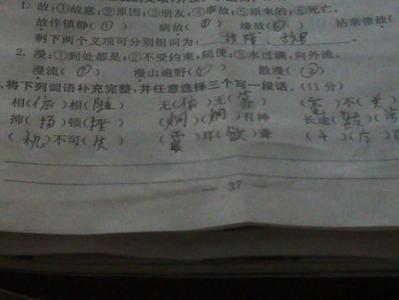 1. 故:①故意;②原因;③朋友;④事故;⑤原来的;⑥死亡。
故作镇静(①) 病故(⑥) 缘故(②) 沾亲带故(
剩下两个义项可分别组词为:
2. 漫:①到处都是;②不受约束,随便;③水过满,向外流。
漫流( ) 漫山遍野( ) 散漫( )
、将下列词语补充完整,并任意选择三个写一段话。(11 分)
相(依)相(随) 无(依)无(靠) ( )不(关)
抑(扬)顿(挫) (炯)(炯)有神 长途(跋)(
(机)不可(失) (震)耳(欲)聋
37